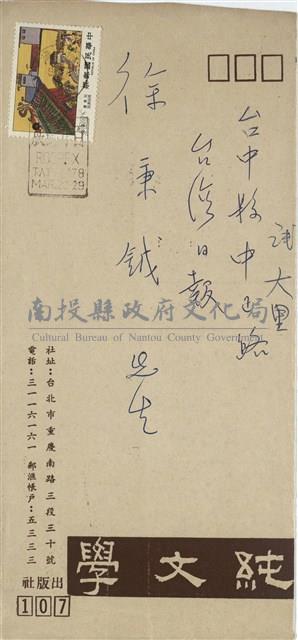 台中縣中山路
大里
台灣日報
徐秉鉞先生
ROCPEX
TAIPEI '78
MAR. 20-29
南投縣政府文化局
Cultural Bureau of Nantou County Government
社址：台北市重慶南路三段三十號
電話：三一一六一六一 郵滙帳戶：五三三三
純文學
出版社
107